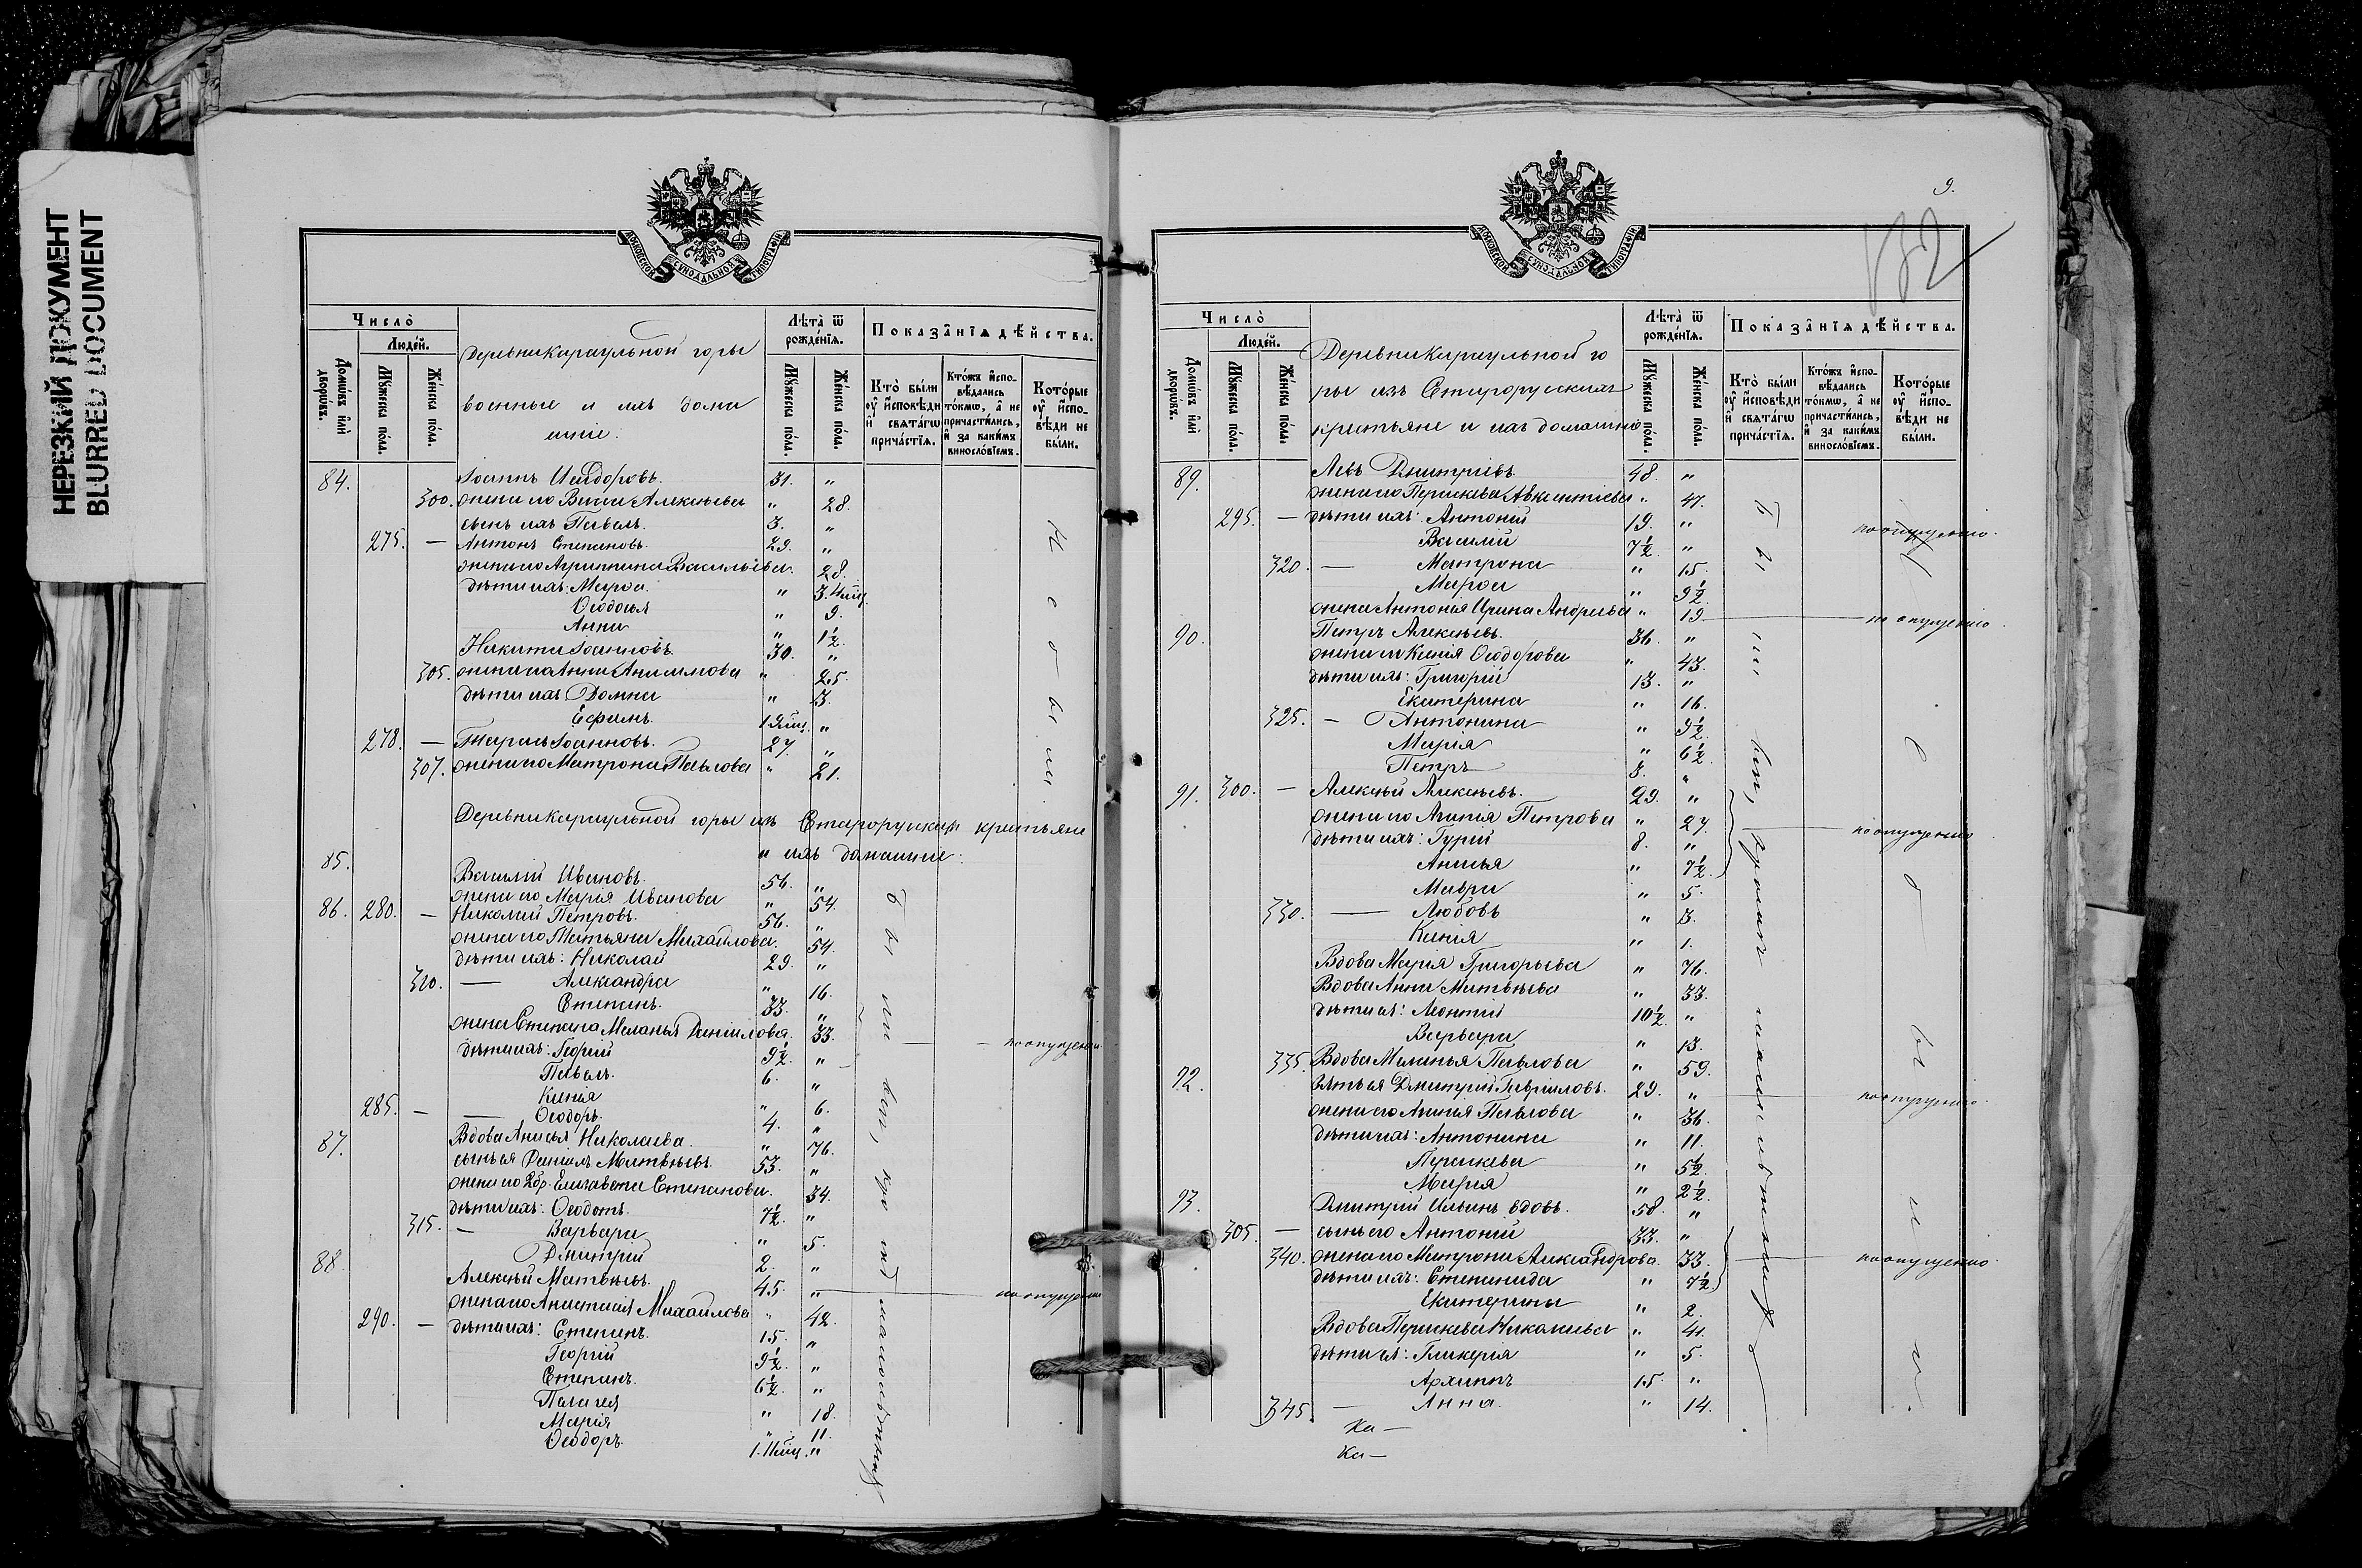 НЕРЕЗКИЙ ДОКУМЕНТ
BLURRED DOCUMENT
МОСКОВСКОЙ СѴНОДАЛЬНОЙ ТИПОГРАФІИ
Число̀
Людей.
Домѡвъ или дворѡвъ.
Мꙋжеска пола.
Женска пола.
Деревни Караульной горы
военные и ихъ дома
шніе:
Лѣта ѿ рожденїѧ.
Мꙋжеска пола.
Женска пола.
Показанїѧ дѣйства.
Кто были оу исповѣди и свѧтагѡ причастїѧ.
Ктожъ исповѣдались токмѡ, а не причастились, и за какимъ винословїемъ.
Которые оу исповѣди не были.
84. Іоаннъ Исидоровъ. 31. "
300. жена его Васса Алексѣева " 28.
сынъ ихъ Павелъ. 3. "
275. — Антонъ Степановъ. 29. "
жена его Агриппина Васильева. 28.
дѣти ихъ: Марѳа. " 3. 4мѣц.
Ѳеодосья " 9.
Анна " 1½.
Никита Іоанновъ. 30. "
305. жена его Анна Анисимова " 25.
дѣти ихъ Домна " 3.
Ефимъ. 1 2мѣц. "
278. — Тарасъ Іоанновъ. 27. "
307. жена его Матрона Павлова " 21.
Не были.
Деревни Караульной горы изъ Старорусскихъ крестьяне
и ихъ домашніе:
85. Василій Ивановъ. 56. "
жена его Марія Иванова " 54.
86. 280. — Николай Петровъ. 56. "
жена его Татьяна Михайлова. 54.
дѣти ихъ: Николай 29. "
310. — Александра " 16.
Степанъ. 33. "
жена Степана Меланья Даніилова. 33.
дѣти ихъ: Георгій 9½. "
Павелъ. 6. "
Ксенія " 6.
285. — — Ѳеодоръ. 4. "
87. Вдова Анисья Николаева. " 76.
сынъ ея Даніилъ Матвѣевъ. 53. "
жена его 2бр. Елизавета Степанова. 34.
дѣти ихъ: Ѳеодотъ. 7½. "
315. — Варвара " 5.
Дмитрій 2. "
88. Алексѣй Матвѣевъ. 45. "
жена его Анастасія Михайлова " 42.
290. — дѣти ихъ: Степанъ. 15. "
Георгій 9½. "
Степанъ. 6½. "
Пелагея " 18.
Марія " 11.
Ѳеодоръ. 1. 11мѣц. "
Были, кромѣ малолѣтнихъ
по опущенію
по опущенію
9.
132
МОСКОВСКОЙ СѴНОДАЛЬНОЙ ТИПОГРАФІИ
Число̀
Людей.
Домѡвъ или дворѡвъ.
Мꙋжеска пола.
Женска пола.
Деревни Караульной го
ры изъ Старорусскихъ
крестьяне и ихъ домашніе
Лѣта ѿ рожденїѧ.
Мꙋжеска пола.
Женска пола.
Показанїѧ дѣйства.
Кто были оу исповѣди и свѧтагѡ причастїѧ.
Ктожъ исповѣдались токмѡ, а не причастились, и за какимъ винословїемъ.
Которые оу исповѣди не были.
89. Левъ Дмитріевъ. 48. "
жена его Параскева Авксентіева " 47.
295. — дѣти ихъ: Антоній 19. " по опущенію.
Василій 7½. "
320. — Матрона " 15.
Марѳа " 9½.
жена Антонія Ирина Андреева " 19. по опущенію.
90. Петръ Алексѣевъ. 36. "
жена его Ксенія Ѳеодорова " 43.
дѣти ихъ: Григорій 13. "
Екатерина " 16.
325. — Антонина " 9½.
Марія " 6½.
Петръ 3. "
91. 300. — Алексѣй Алексѣевъ. 29. "
жена его Агапія Петрова " 27. по опущенію
дѣти ихъ: Гурій 8. "
Анисья " 7½.
Мавра " 5.
330. — Любовь " 3.
Ксенія " 1.
Вдова Марія Григорьева " 76.
Вдова Анна Матвѣева " 33.
дѣти ея: Леонтій 10½. "
Варвара " 13.
335. Вдова Меланья Павлова " 59.
92. Зять ея Дмитрій Гавріиловъ. 29. " по опущенію.
жена его Агапія Павлова " 36.
дѣти ихъ: Антонина " 11.
Параскева " 5½.
Марія " 2½.
93. Дмитрій Ильинъ вдовъ. 58. "
305. — сынъ его Антоній 33. "
340. жена его Матрона Александрова. 33. по опущенію.
дѣти ихъ: Степанида " 7½
Екатерина " 2.
Вдова Параскева Никонаева " 41.
дѣти ея: Гликерія " 5.
Архиппъ 15. "
345. — Анна. " 14.
Были, кромѣ малолѣтнихъ
Ка —
Ка —